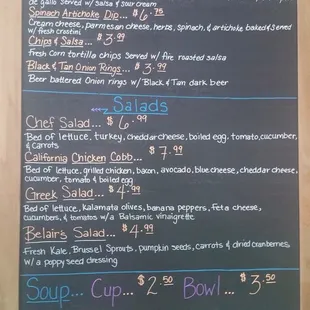 de gallo Served w/ salsa & sour cream
Spinach Artichoke Dip... $6.75
Cream cheese, parmesean cheese, herbs, spinach, & artichoke baked & Served
w/ fresh crostini
Chips & Salsa... $3.99
fresh Corn tortilla chips Served w/ fire roasted salsa
Black & Tan Onion Rings... $3.99
Beer battered Onion rings w/ Black & Tan dark beer
Salads
Chef Salad... $6.99
Bed of lettuce, turkey, cheddar cheese, boiled egg, tomato, cucumber,
& carrots
California Chicken Cobb... $7.99
Bed of lettuce, grilled chicken, bacon, avocado, blue cheese, cheddar cheese,
cucumber, tomato & boiled egg
Greek Salad... $4.99
Bed of lettuce, kalamata olives, banana peppers, feta cheese,
cucumbers, & tomatos w/a Balsamic vinaigrette
Belair's Salad... $4.99
Fresh Kale, Brussel Sprouts, pumpkin seeds, carrots & dried cranberries,
w/a poppyseed dressing
Soup... Cup... $2.50 Bowl... $3.50